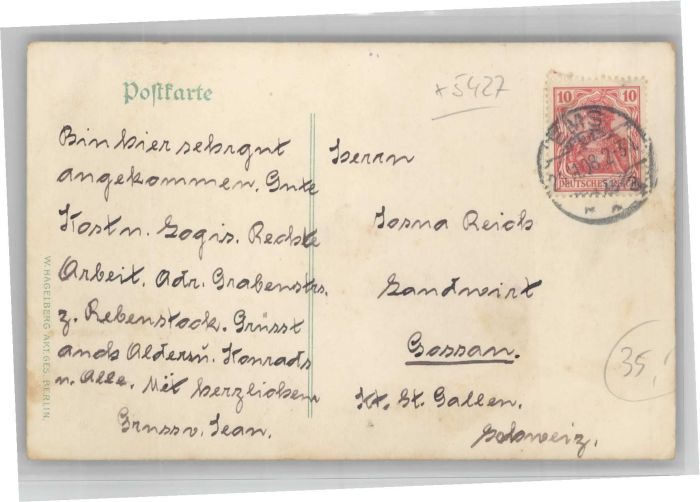 Postkarte
+5427
Bin hier sehr gut
angekommen. Gute
Kost u. Logis. Rechte
Arbeit. Adr. Grabenstrs.
z. Rebenstock. Grüsst
auch Aldersú. Konrads
u. Alle. Mit herzlichem
Gruss v. Jean.
Herrn
Reich
Landwirt
Gossau.
Kt. St. Gallen.
Schweiz.
10 10
DEUTSCHES REICH
EMS
35,
W. HAGELBERG AKT. GES. BERLIN.